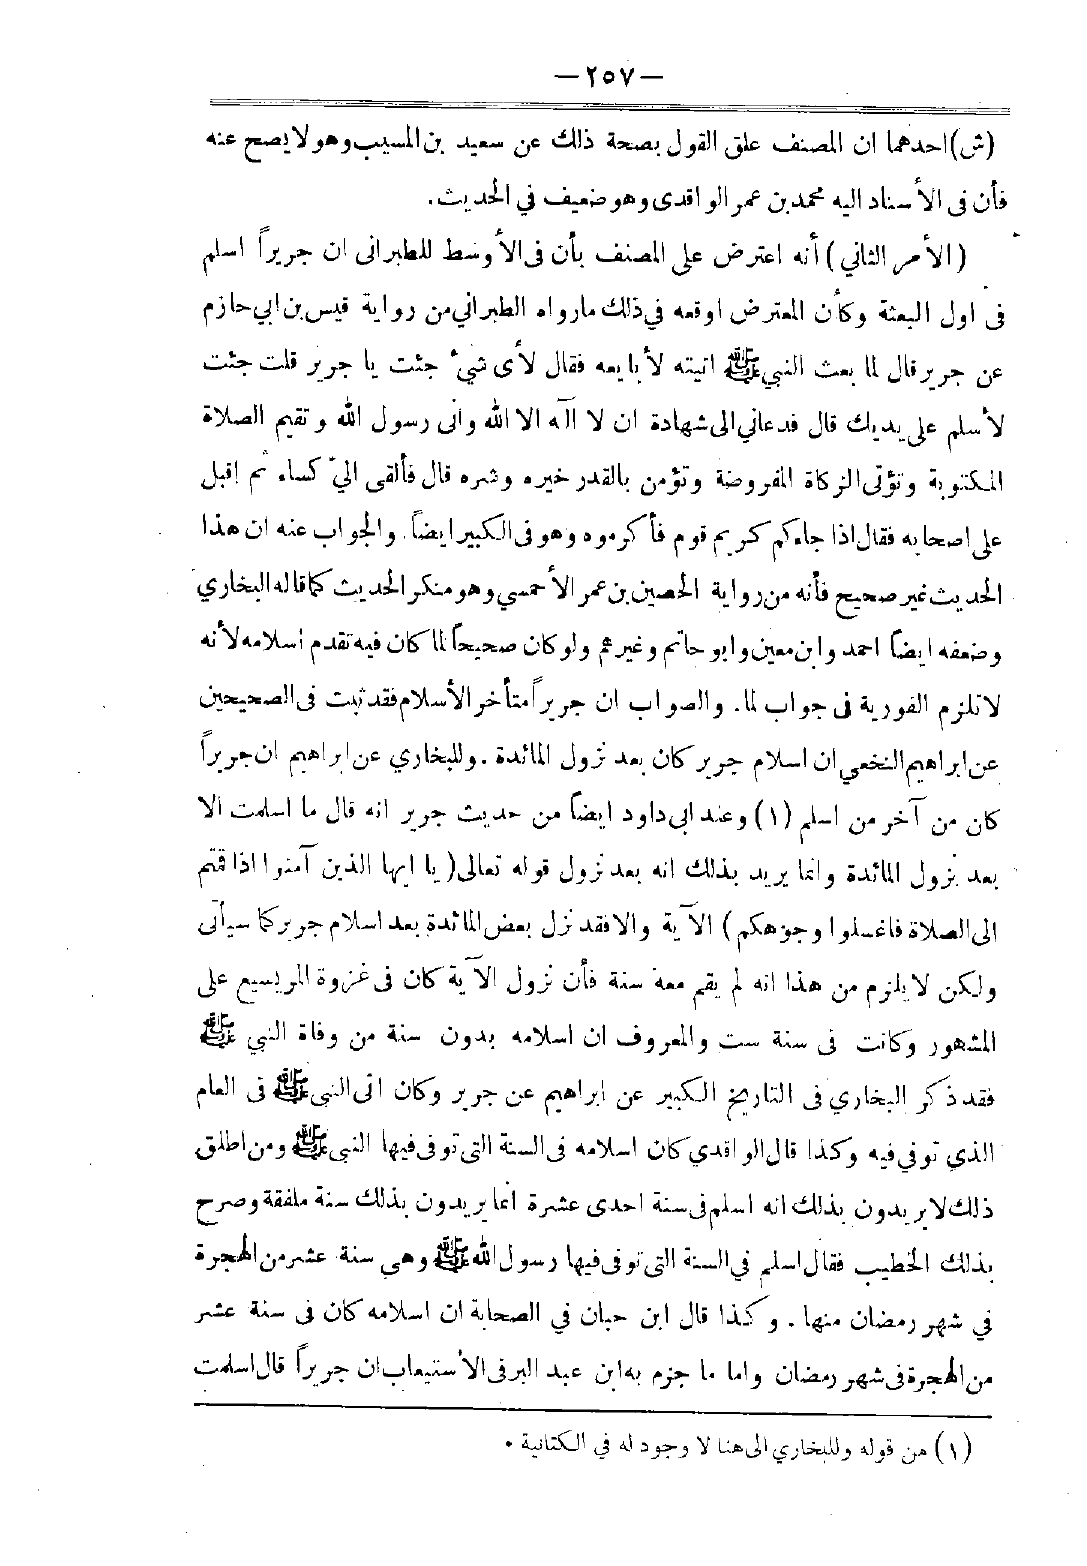 — ٢٥٧ —
(ش) احدهما ان المصنف علق القول بصحة ذلك عن سعيد بن المسيب وهو لا يصح عنه
فأن فى الأسناد اليه محمد بن عمر الواقدى وهو ضعيف في الحديث.
(الأمر الثاني) أنه اعترض على المصنف بأن فى الأوسط للطبرانى ان جريراً اسلم
فى اول البعثة وكأن المعترض اوقعه في ذلك مارواه الطبراني من رواية قيس بن ابي حازم
عن جرير قال لما بعث النبي ﷺ اتيته لأبايعه فقال لأى شيء جئت يا جرير قلت جئت
لأسلم على يديك قال فدعاني الى شهادة ان لا آله الا الله وانى رسول الله وتقيم الصلاة
المكتوبة وتؤتى الزكاة المفروضة وتؤمن بالقدر خيره وشره قال فألقى اليّ كساء ثم اقبل
على اصحابه فقال اذا جاءكم كريم قوم فأكرموه وهو فى الكبير ايضاً. والجواب عنه ان هذا
الحديث غير صحيح فأنه من رواية الحصين بن عمر الأحمسي وهو منكر الحديث كما قاله البخاري
وضعفه ايضاً احمد وابن معين وابو حاتم وغيرهم ولو كان صحيحاً لما كان فيه تقدم اسلامه لأنه
لا تلزم الفورية فى جواب لما. والصواب ان جريراً متأخر الأسلام فقد ثبت فى الصحيحين
عن ابراهيم النخعي ان اسلام جرير كان بعد نزول المائدة. وللبخاري عن ابراهيم ان جريراً
كان من آخر من اسلم (١) وعند ابى داود ايضاً من حديث جرير انه قال ما اسلمت الا
بعد نزول المائدة وانما يريد بذلك انه بعد نزول قوله تعالى (يا ايها الذين آمنوا اذا قمتم
الى الصلاة فاغسلوا وجوهكم) الآية والا فقد نزل بعض المائدة بعد اسلام جرير كما سيأتى
ولكن لا يلزم من هذا انه لم يقم معه سنة فأن نزول الآية كان فى غزوة المريسيع على
المشهور وكانت فى سنة ست والمعروف ان اسلامه بدون سنة من وفاة النبي ﷺ
فقد ذكر البخاري فى التاريخ الكبير عن ابراهيم عن جرير وكان اتى النبي ﷺ فى العام
الذي توفي فيه وكذا قال الواقدي كان اسلامه فى السنة التى توفى فيها النبي ﷺ ومن اطلق
ذلك لا يريدون بذلك انه اسلم فى سنة احدى عشرة انما يريدون بذلك سنة ملفقة وصرح
بذلك الخطيب فقال اسلم في السنة التى توفى فيها رسول الله ﷺ وهي سنة عشر من الهجرة
في شهر رمضان منها. وكذا قال ابن حبان في الصحابة ان اسلامه كان فى سنة عشر
من الهجرة فى شهر رمضان واما ما جزم به ابن عبد البر فى الاستيعاب ان جريراً قال اسلمت
(١) من قوله وللبخاري الى هنا لا وجود له في الكتانية .